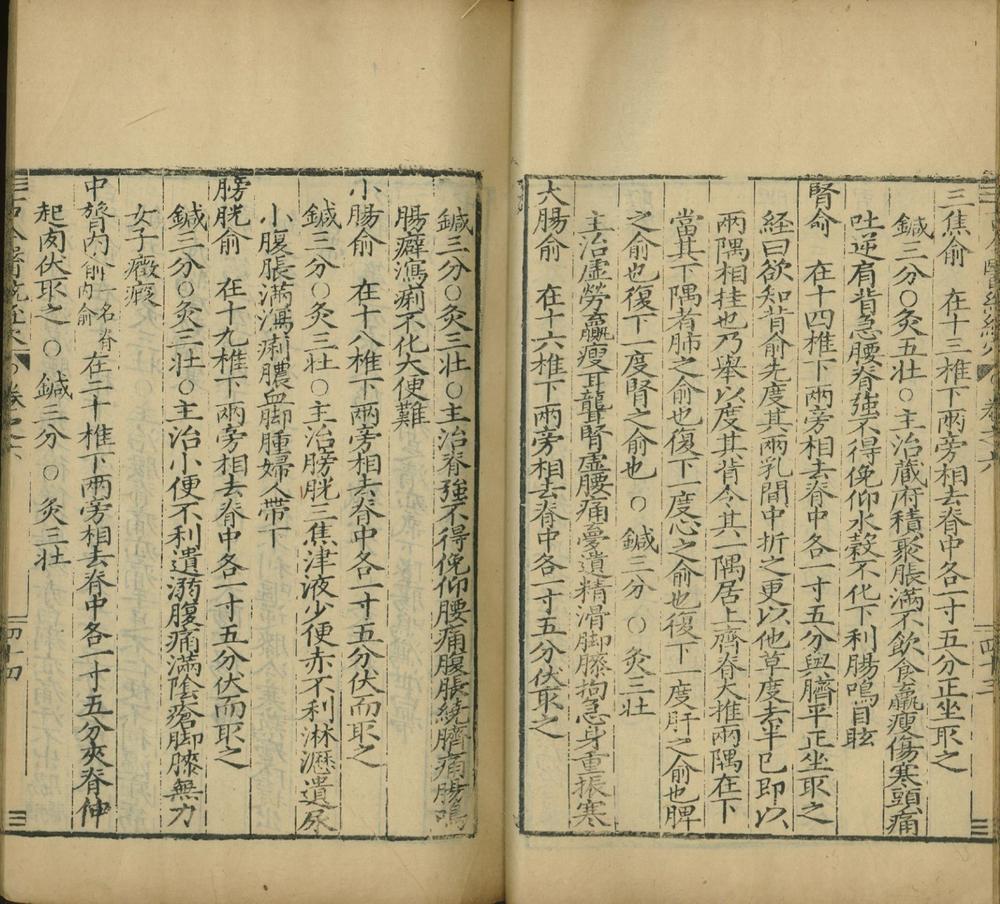 三焦俞　在十三椎下兩旁相去脊中各一寸五分正坐取之
鍼三分○灸五壯○主治藏府積聚脹滿不飲食羸瘦傷寒頭痛
吐逆肩背急腰脊強不得俛仰水穀不化下利腸鳴目眩
腎俞　在十四椎下兩旁相去脊中各一寸五分與臍平正坐取之
經曰欲知背俞先度其兩乳間中折之更以他草度去半已即以
兩隅相拄也乃舉以度其背令其一隅居上齊脊大椎兩隅在下
當其下隅者肺之俞也復下一度心之俞也復下一度肝之俞也脾
之俞也復下一度腎之俞也　○鍼三分　○灸三壯
主治虛勞羸瘦耳聾腎虛腰痛夢遺精滑脚膝拘急身重振寒
大腸俞　在十六椎下兩旁相去脊中各一寸五分伏取之
卷之六
四十三
鍼三分○灸三壯○主治脊強不得俛仰腰痛腹脹繞臍痛腸鳴
腸癖瀉痢不化大便難
小腸俞　在十八椎下兩旁相去脊中各一寸五分伏而取之
鍼三分○灸三壯○主治膀胱三焦津液少便赤不利淋瀝遺尿
小腹脹滿瀉痢膿血脚腫婦人帶下
膀胱俞　在十九椎下兩旁相去脊中各一寸五分伏而取之
鍼三分○灸三壯○主治小便不利遺溺腹痛滿陰瘡脚膝無力
女子癥瘕
中膂內俞一名脊內俞在二十椎下兩旁相去脊中各一寸五分夾脊伸
起肉伏取之　○鍼三分　○灸三壯
卷之六
四十四